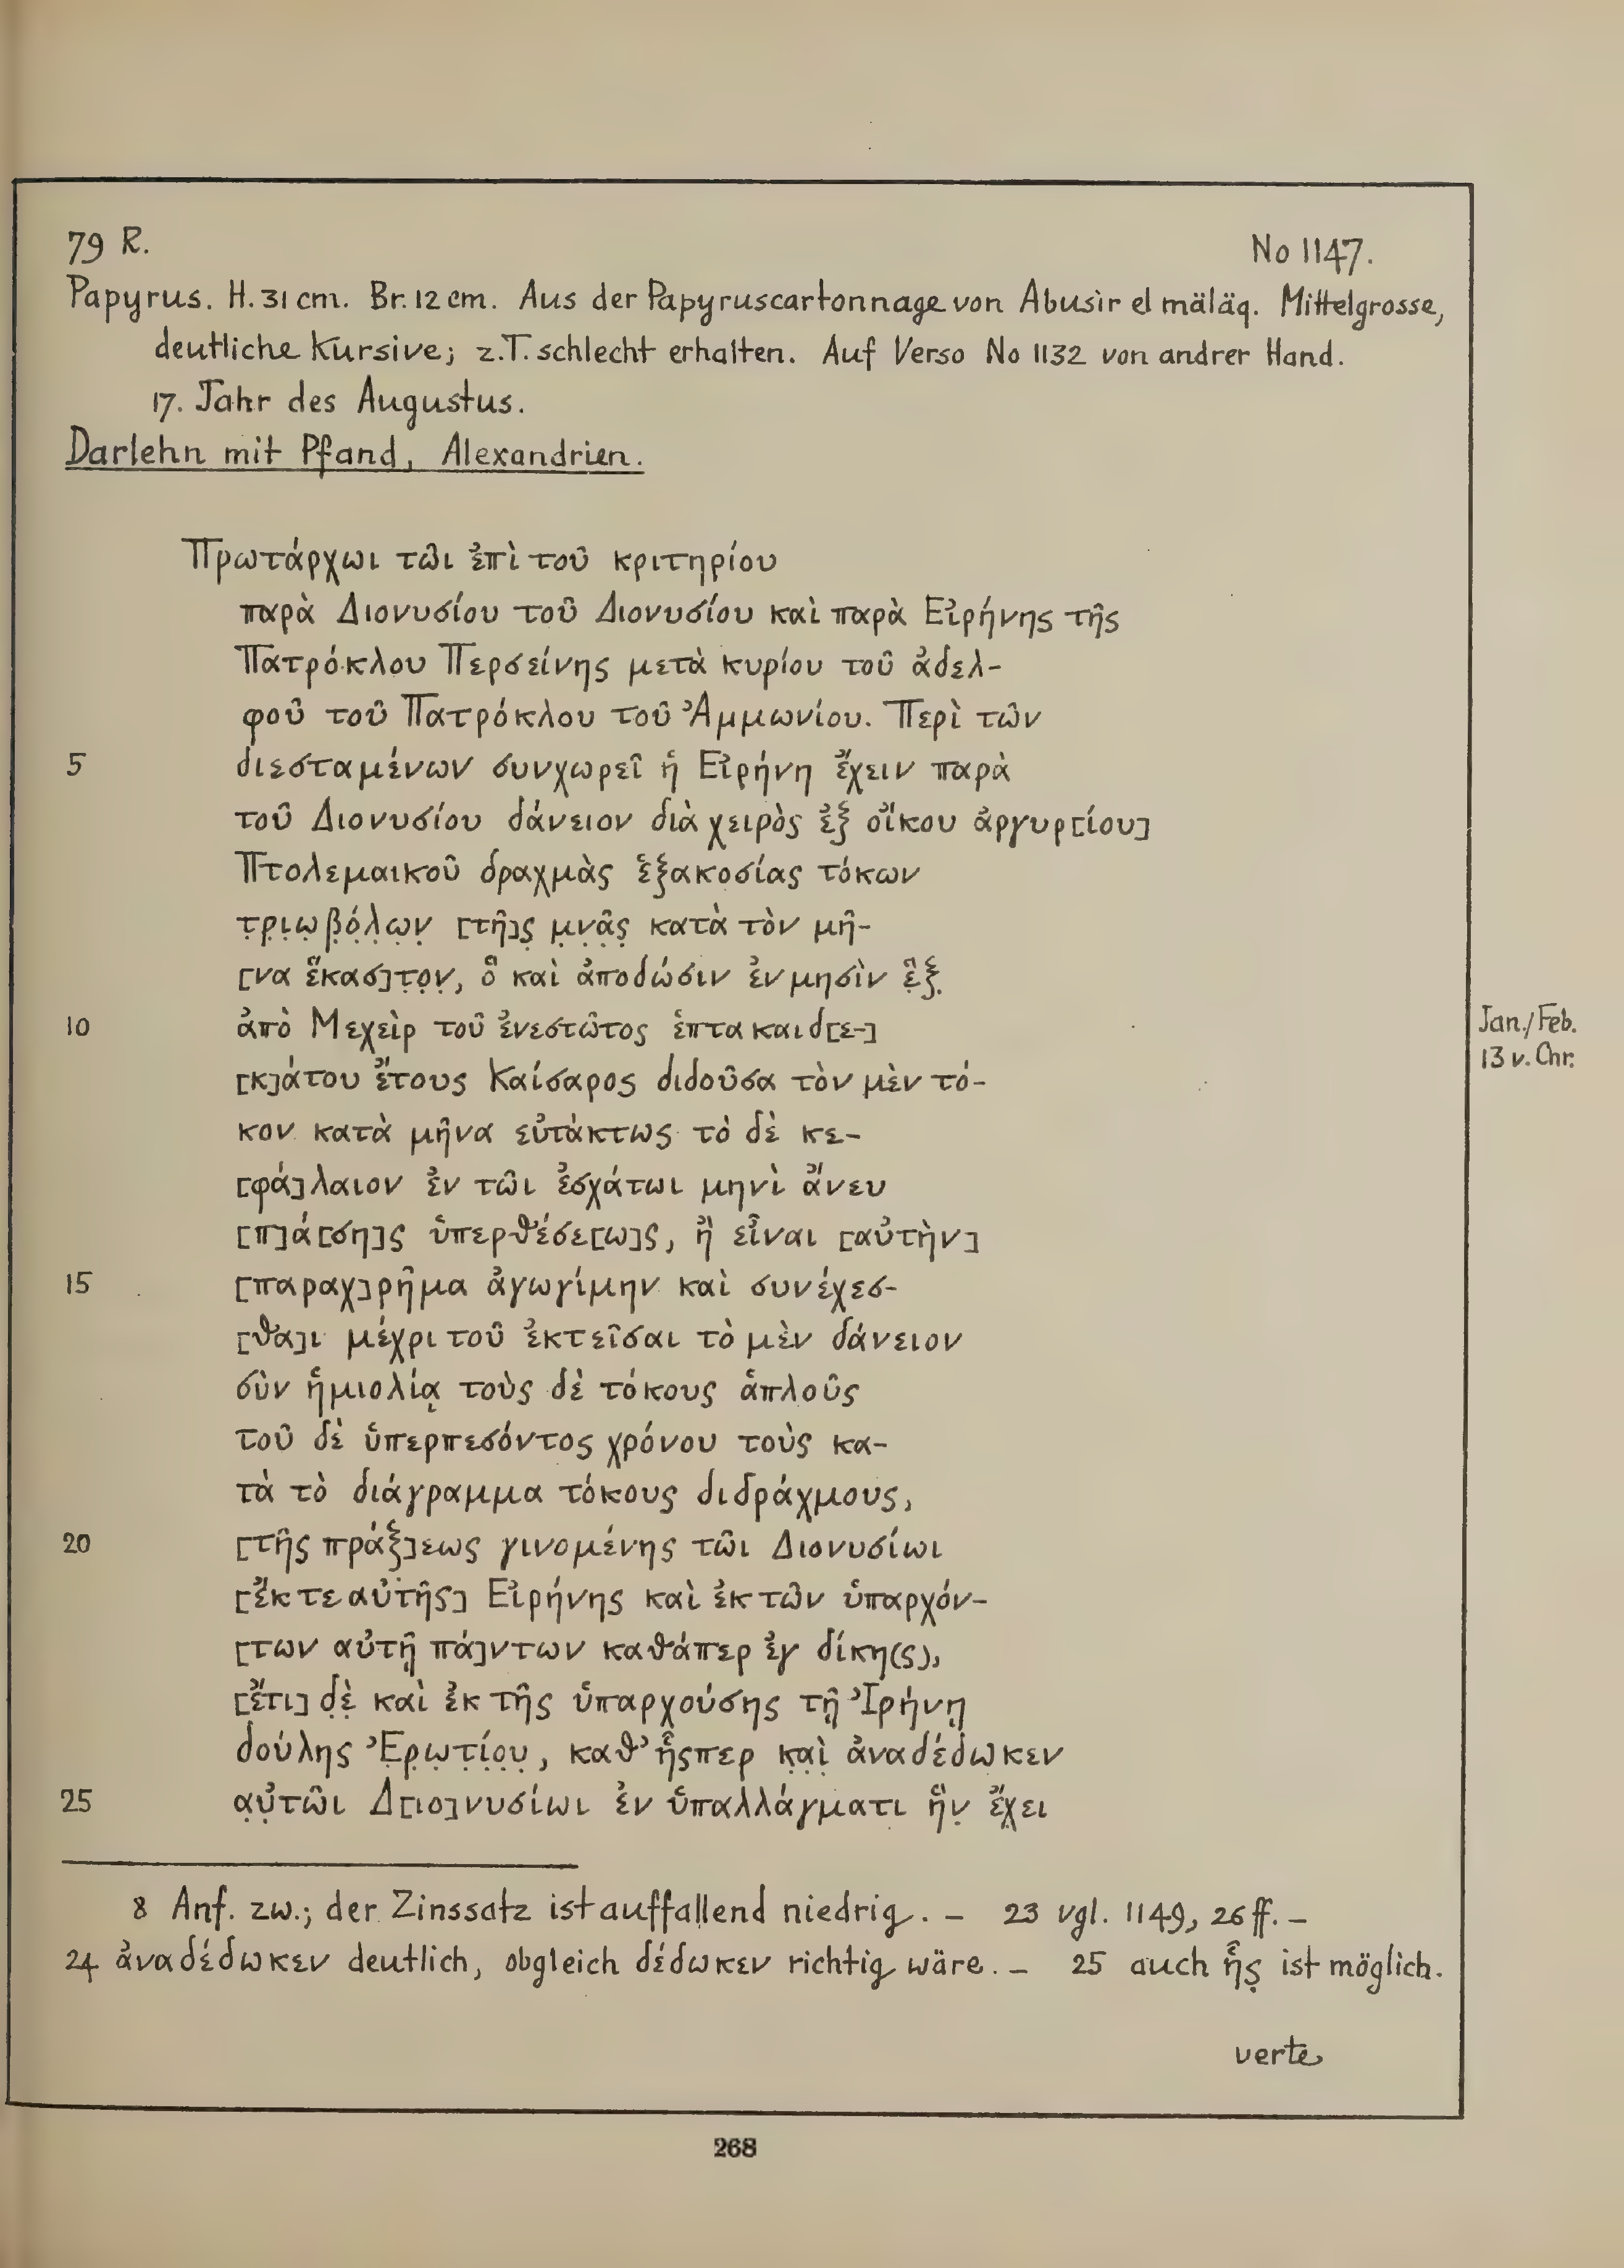 79 R.
No 1147.
Papyrus. H. 31 cm. Br. 12 cm. Aus der Papyruscartonnage von Abusir el mäläq. Mittelgrosse,
deutliche Kursive; z.T. schlecht erhalten. Auf Verso No 1132 von andrer Hand.
17. Jahr des Augustus.
Darlehn mit Pfand, Alexandrien.
Πρωτάρχωι τῶι ἐπὶ τοῦ κριτηρίου
παρὰ Διονυσίου τοῦ Διονυσίου καὶ παρὰ Εἰρήνης τῆς
Πατρόκλου Περσείνης μετὰ κυρίου τοῦ ἀδελ-
φοῦ τοῦ Πατρόκλου τοῦ Ἀμμωνίου. Περὶ τῶν
5 διεσταμένων συνχωρεῖ ἡ Εἰρήνη ἔχειν παρὰ
τοῦ Διονυσίου δάνειον διὰ χειρὸς ἐξ οἴκου ἀργυρ[ίου]
Πτολεμαικοῦ δραχμὰς ἑξακοσίας τόκων
τ̣ρ̣ι̣ω̣β̣ό̣λ̣ω̣ν̣ [τῆ]ς̣ μ̣ν̣ᾶ̣ς̣ κατὰ τὸν μῆ-
[να ἕκασ]τ̣ο̣ν̣, ὃ καὶ ἀποδώσιν ἐν μησὶν ἓ̣ξ̣
10 ἀπὸ Μεχεὶρ τοῦ ἐνεστῶτος ἑπτακαιδ[ε-]
Jan./Feb.
13 v. Chr.
[κ]άτου ἔτους Καίσαρος διδοῦσα τὸν μὲν τό-
κον κατὰ μῆνα εὐτάκτως τὸ δὲ κε-
[φά]λαιον ἐν τῶι ἐσχάτωι μηνὶ ἄνευ
[π]ά[ση]ς ὑπερθέσε[ω]ς, ἢ εἶναι [αὐτὴν]
15 [παραχ]ρῆμα ἀγωγίμην καὶ συνέχεσ-
[θα]ι μέχρι τοῦ ἐκτεῖσαι τὸ μὲν δάνειον
σὺν ἡμιολίᾳ τοὺς δὲ τόκους ἁπλοῦς
τοῦ δὲ ὑπερπεσόντος χρόνου τοὺς κα-
τὰ τὸ διάγραμμα τόκους διδράχμους,
20 [τῆς πράξ]εως γινομένης τῶι Διονυσίωι
[ἔκ τε αὐτῆς] Εἰρήνης καὶ ἐκ τῶν ὑπαρχόν-
[των αὐτῇ πά]ντων καθάπερ ἐγ δίκη(ς),
[ἔτι] δ̣ὲ̣ καὶ ἐκ τῆς ὑπαρχούσης τῇ Ἰρήνῃ
δούλης Ἐ̣ρ̣ω̣τ̣ί̣ο̣υ̣, καθ’ ἧςπερ κ̣α̣ὶ̣ ἀναδέδωκεν
25 α̣ὐ̣τῶι Δ[ιο]νυσίωι ἐν ὑπαλλάγματι ἣν̣ ἔχ̣ει
8 Anf. zw.; der Zinssatz ist auffallend niedrig. – 23 vgl. 1149, 26 ff. –
24 ἀναδέδωκεν deutlich, obgleich δέδωκεν richtig wäre. – 25 auch ἧς̣ ist möglich.
verte
268